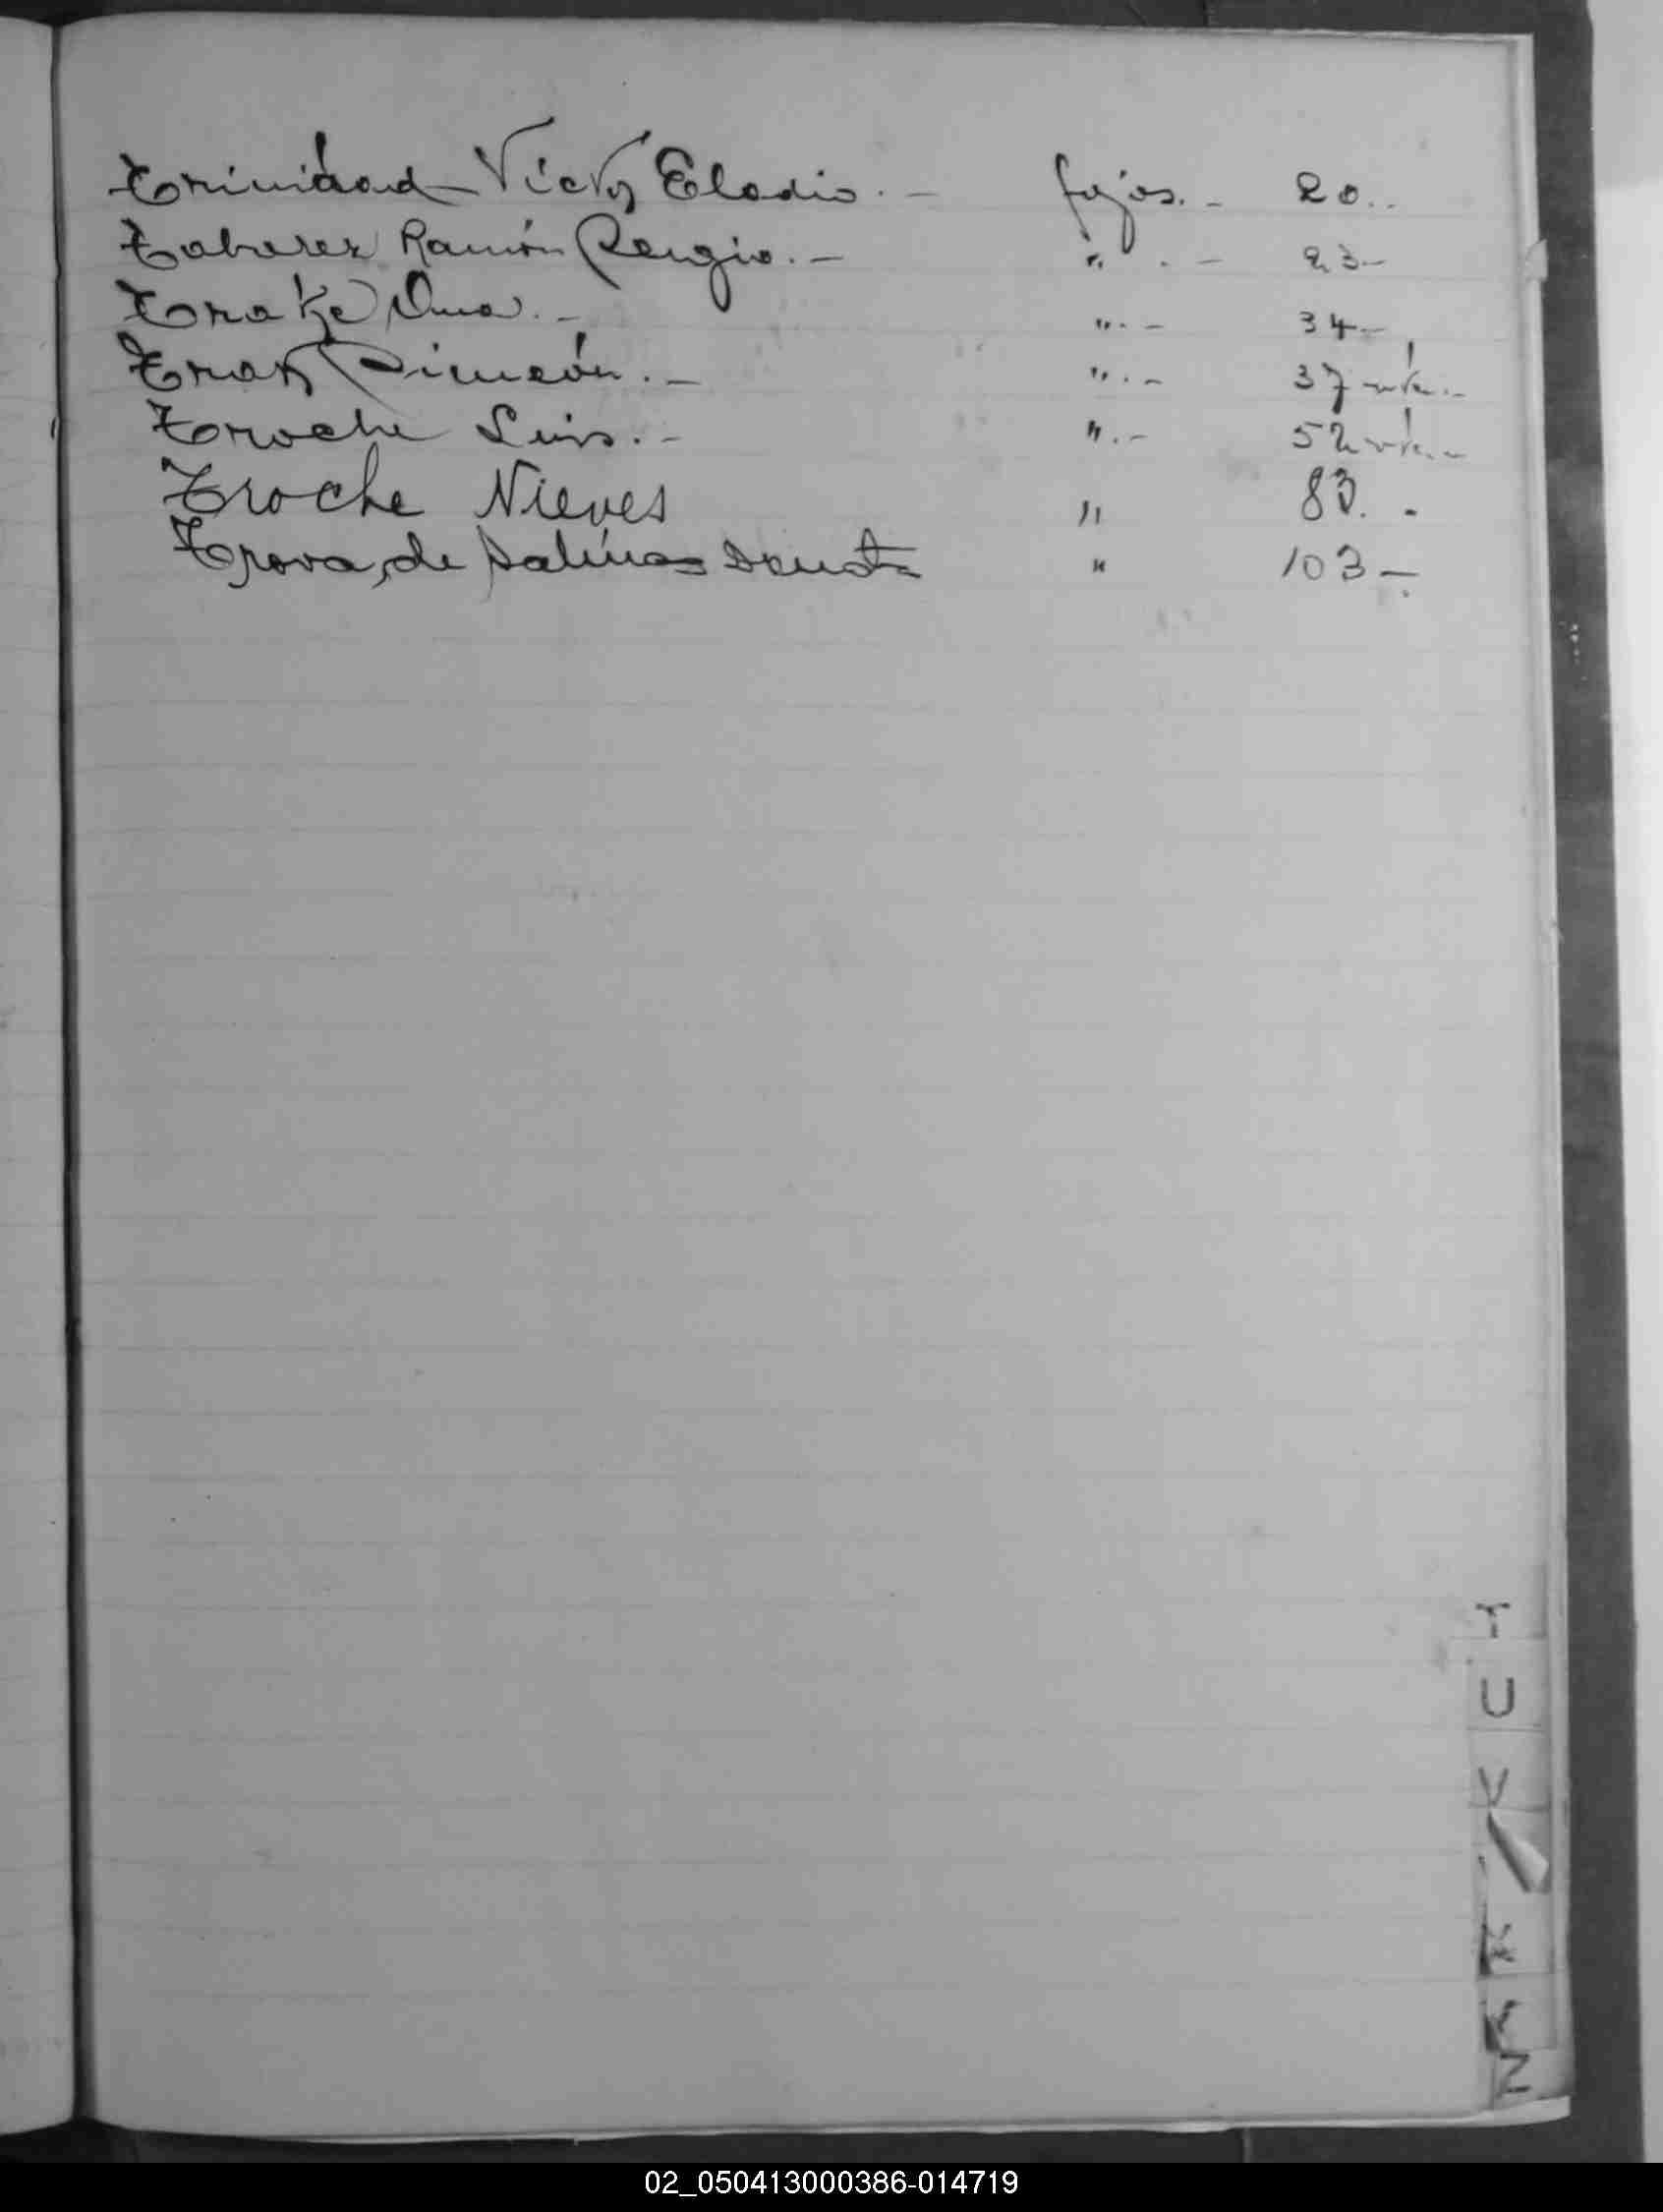 Trinidad Victor Eladio. - fojas. - 20..
Tabarez Ramón Sergio. - " . - 23-
Tratze Oma. - ". - 34-
Trax Simeón. - ". - 37 vta. -
Troche Luis. - ". - 52 vta. -
Troche Nieves " 83. .
Trova, de Salinas Donata " 103 -
T
U
V
Z
02_050413000386-014719